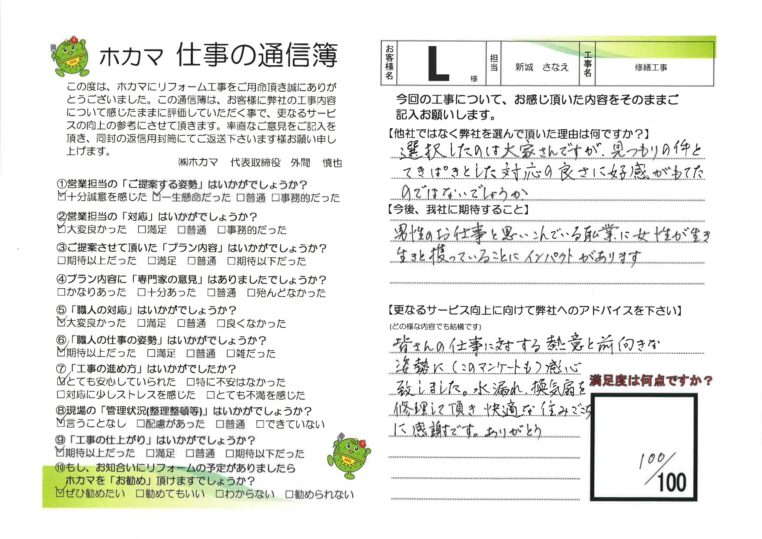 ホカマ 仕事の通信簿
この度は、ホカマにリフォーム工事をご用命頂き誠にありが
とうございました。この通信簿は、お客様に弊社の工事内容
について感じたままに評価していただく事で、更なるサービ
スの向上の参考にさせて頂きます。率直なご意見をご記入を
頂き、同封の返信用封筒にてご返送下さいます様お願い申し
上げます。
㈱ホカマ 代表取締役 外間 慎也
①営業担当の「ご提案する姿勢」はいかがでしょうか?
☑十分誠意を感じた ☑一生懸命だった □普通 □事務的だった
②営業担当の「対応」はいかがでしょうか?
☑大変良かった □満足 □普通 □事務的だった
③ご提案させて頂いた「プラン内容」はいかがでしょうか?
□期待以上だった □満足 □普通 □期待以下だった
④プラン内容に「専門家の意見」はありましたでしょうか?
□かなりあった □十分あった □普通 □殆んどなかった
⑤「職人の対応」はいかがでしょうか?
☑大変良かった □満足 □普通 □良くなかった
⑥「職人の仕事の姿勢」はいかがでしょうか?
☑期待以上だった □満足 □普通 □雑だった
⑦「工事の進め方」はいかがでしたか?
☑とても安心していられた □特に不安はなかった
□対応に少しストレスを感じた □とても不満を感じた
⑧現場の「管理状況(整理整頓等)」はいかがでしょうか?
☑言うことなし □配慮があった □普通 □できていない
⑨「工事の仕上がり」はいかがでしょうか?
☑期待以上だった □満足 □普通 □期待以下だった
⑩もし、お知合いにリフォームの予定がありましたら
ホカマを「お勧め」頂けますでしょうか?
☑ぜひ勧めたい □勧めてもいい □わからない □勧められない
お客様名 L 様 担当 新城 さなえ 工事名 修繕工事
今回の工事について、お感じ頂いた内容をそのままご
記入お願いします。
【他社ではなく弊社を選んで頂いた理由は何ですか?】
選択したのは大家さんですが、見つもりの件と
てきぱきとした対応の良さに好感がもてた
のではないでしょうか
【今後、我社に期待すること】
男性のお仕事と思いこんでいる職業に女性が生き
生きと獲っていることにインパクトがあります
【更なるサービス向上に向けて弊社へのアドバイスを下さい】
(どの様な内容でも結構です)
皆さんの仕事に対する熱意と前向きな
姿勢に(このアンケートも)感心
致しました。水漏れ、換気扇を
修理して頂き快適な住みごこち
に感謝です。ありがとう
満足度は何点ですか?
100/100